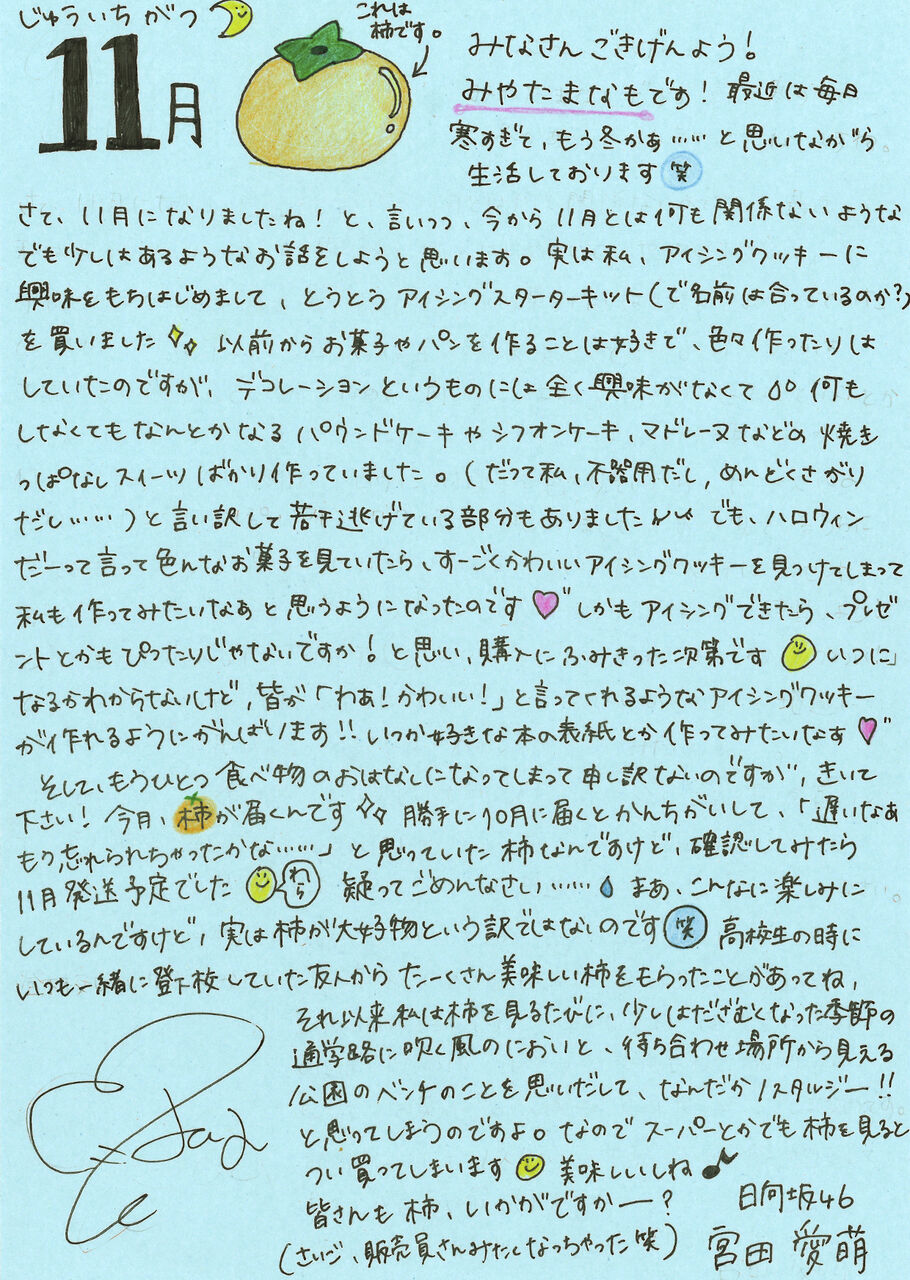 じゅういちがつ
11月
これは
柿です。
みなさん ごきげんよう!
みやたまなもです! 最近は毎日
寒すぎて、もう冬かぁ……と思いながら
生活しております 笑
さて、11月になりましたね! と、言いつつ、今から11月とは何も関係ないような
でも少しはあるようなお話をしようと思います。実は私、アイシングクッキーに
興味をもちはじめまして、とうとうアイシングスターターキット(で名前は合っているのか?)
を買いました 以前からお菓子やパンを作ることは好きで、色々作ったりは
していたのですが、デコレーションというものには全く興味がなくて 何も
しなくてもなんとかなるパウンドケーキやシフォンケーキ、マドレーヌなどの焼き
っぱなしスイーツばかり作っていました。(だって私、不器用だし、めんどくさがり
だし……)と言い訳して若干逃げている部分もありました でも、ハロウィン
だーって言って色んなお菓子を見ていたら、すーごくかわいいアイシングクッキーを見つけてしまって
私も作ってみたいなぁと思うようになったのです しかもアイシングできたら、プレゼ
ントとかもぴったりじゃないですか!と思い、購入にふみきった次第です いつに
なるかわからないけど、皆が「わぁ!かわいい!」と言ってくれるようなアイシングクッキー
が作れるようにがんばります!! いつか好きな本の表紙とか作ってみたいなぁ
そして、もうひとつ食べ物のおはなしになってしまって申し訳ないのですが、きいて
下さい! 今月、柿が届くんです 勝手に10月に届くとかんちがいして、「遅いなぁ
もう忘れられちゃったかな……」と思っていた柿なんですけど、確認してみたら
11月発送予定でした わら 疑ってごめんなさい…… まあ、こんなに楽しみに
しているんですけど、実は柿が大好物という訳ではないのです 笑 高校生の時に
いつも一緒に登下校していた友人からたーくさん美味しい柿をもらったことがあってね、
それ以来私は柿を見るたびに、少しはだざむくなった季節の
通学路に吹く風のにおいと、待ち合わせ場所から見える
公園のベンチのことを思いだして、なんだかノスタルジー!!
と思ってしまうのですよ。なのでスーパーとかでも柿を見ると
つい買ってしまいます 美味しいしね♪
皆さんも柿、いかがですかー?
(さいご、販売員さんみたくなっちゃった笑)
日向坂46
宮田 愛萌